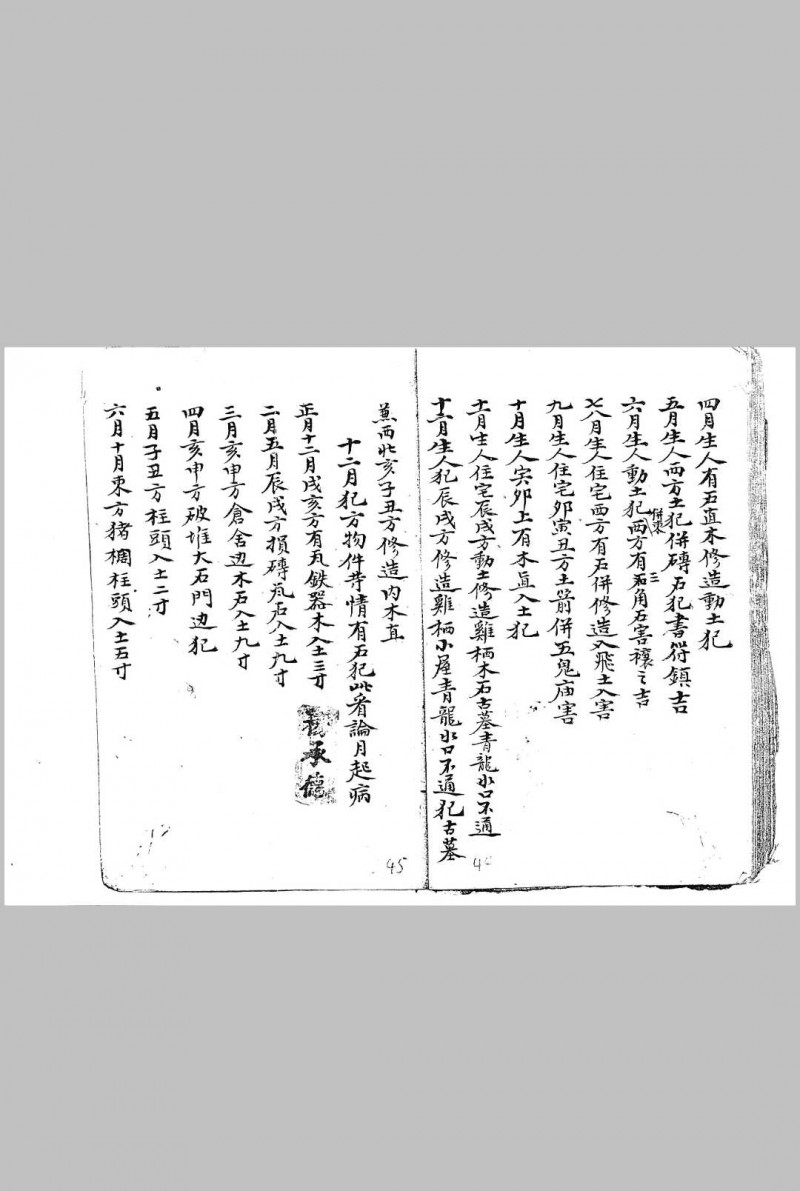 四月生人有石直木修造動土犯
五月生人西方土犯併磚石犯書符鎮吉
六月生人動土犯西方併東有石三角石害禳之吉
七八月生人住宅西方有石併修造入飛土入害
九月生人住宅卯寅丑方土箭併五鬼庙害
十月生人宅卯上有木直入土犯
十一月生人住宅辰戌方動土修造雞栖木石古墓青龍水口不通
十二月生人犯辰戌方修造雞栖小屋青龍水口不通犯古墓
45
蒸西北亥子丑方修造内木直
十二月犯方物件苛情有石犯此看論月起病
正月十二月戌亥方有瓦鉄器木入土三寸
二月五月辰戌方損磚瓦石入土九寸
三月亥申方倉舍边木石入土九寸
四月亥申方破堆大石門边犯
五月子丑方柱頭入土二寸
六月十月東方猪椆柱頭入土五寸
承德